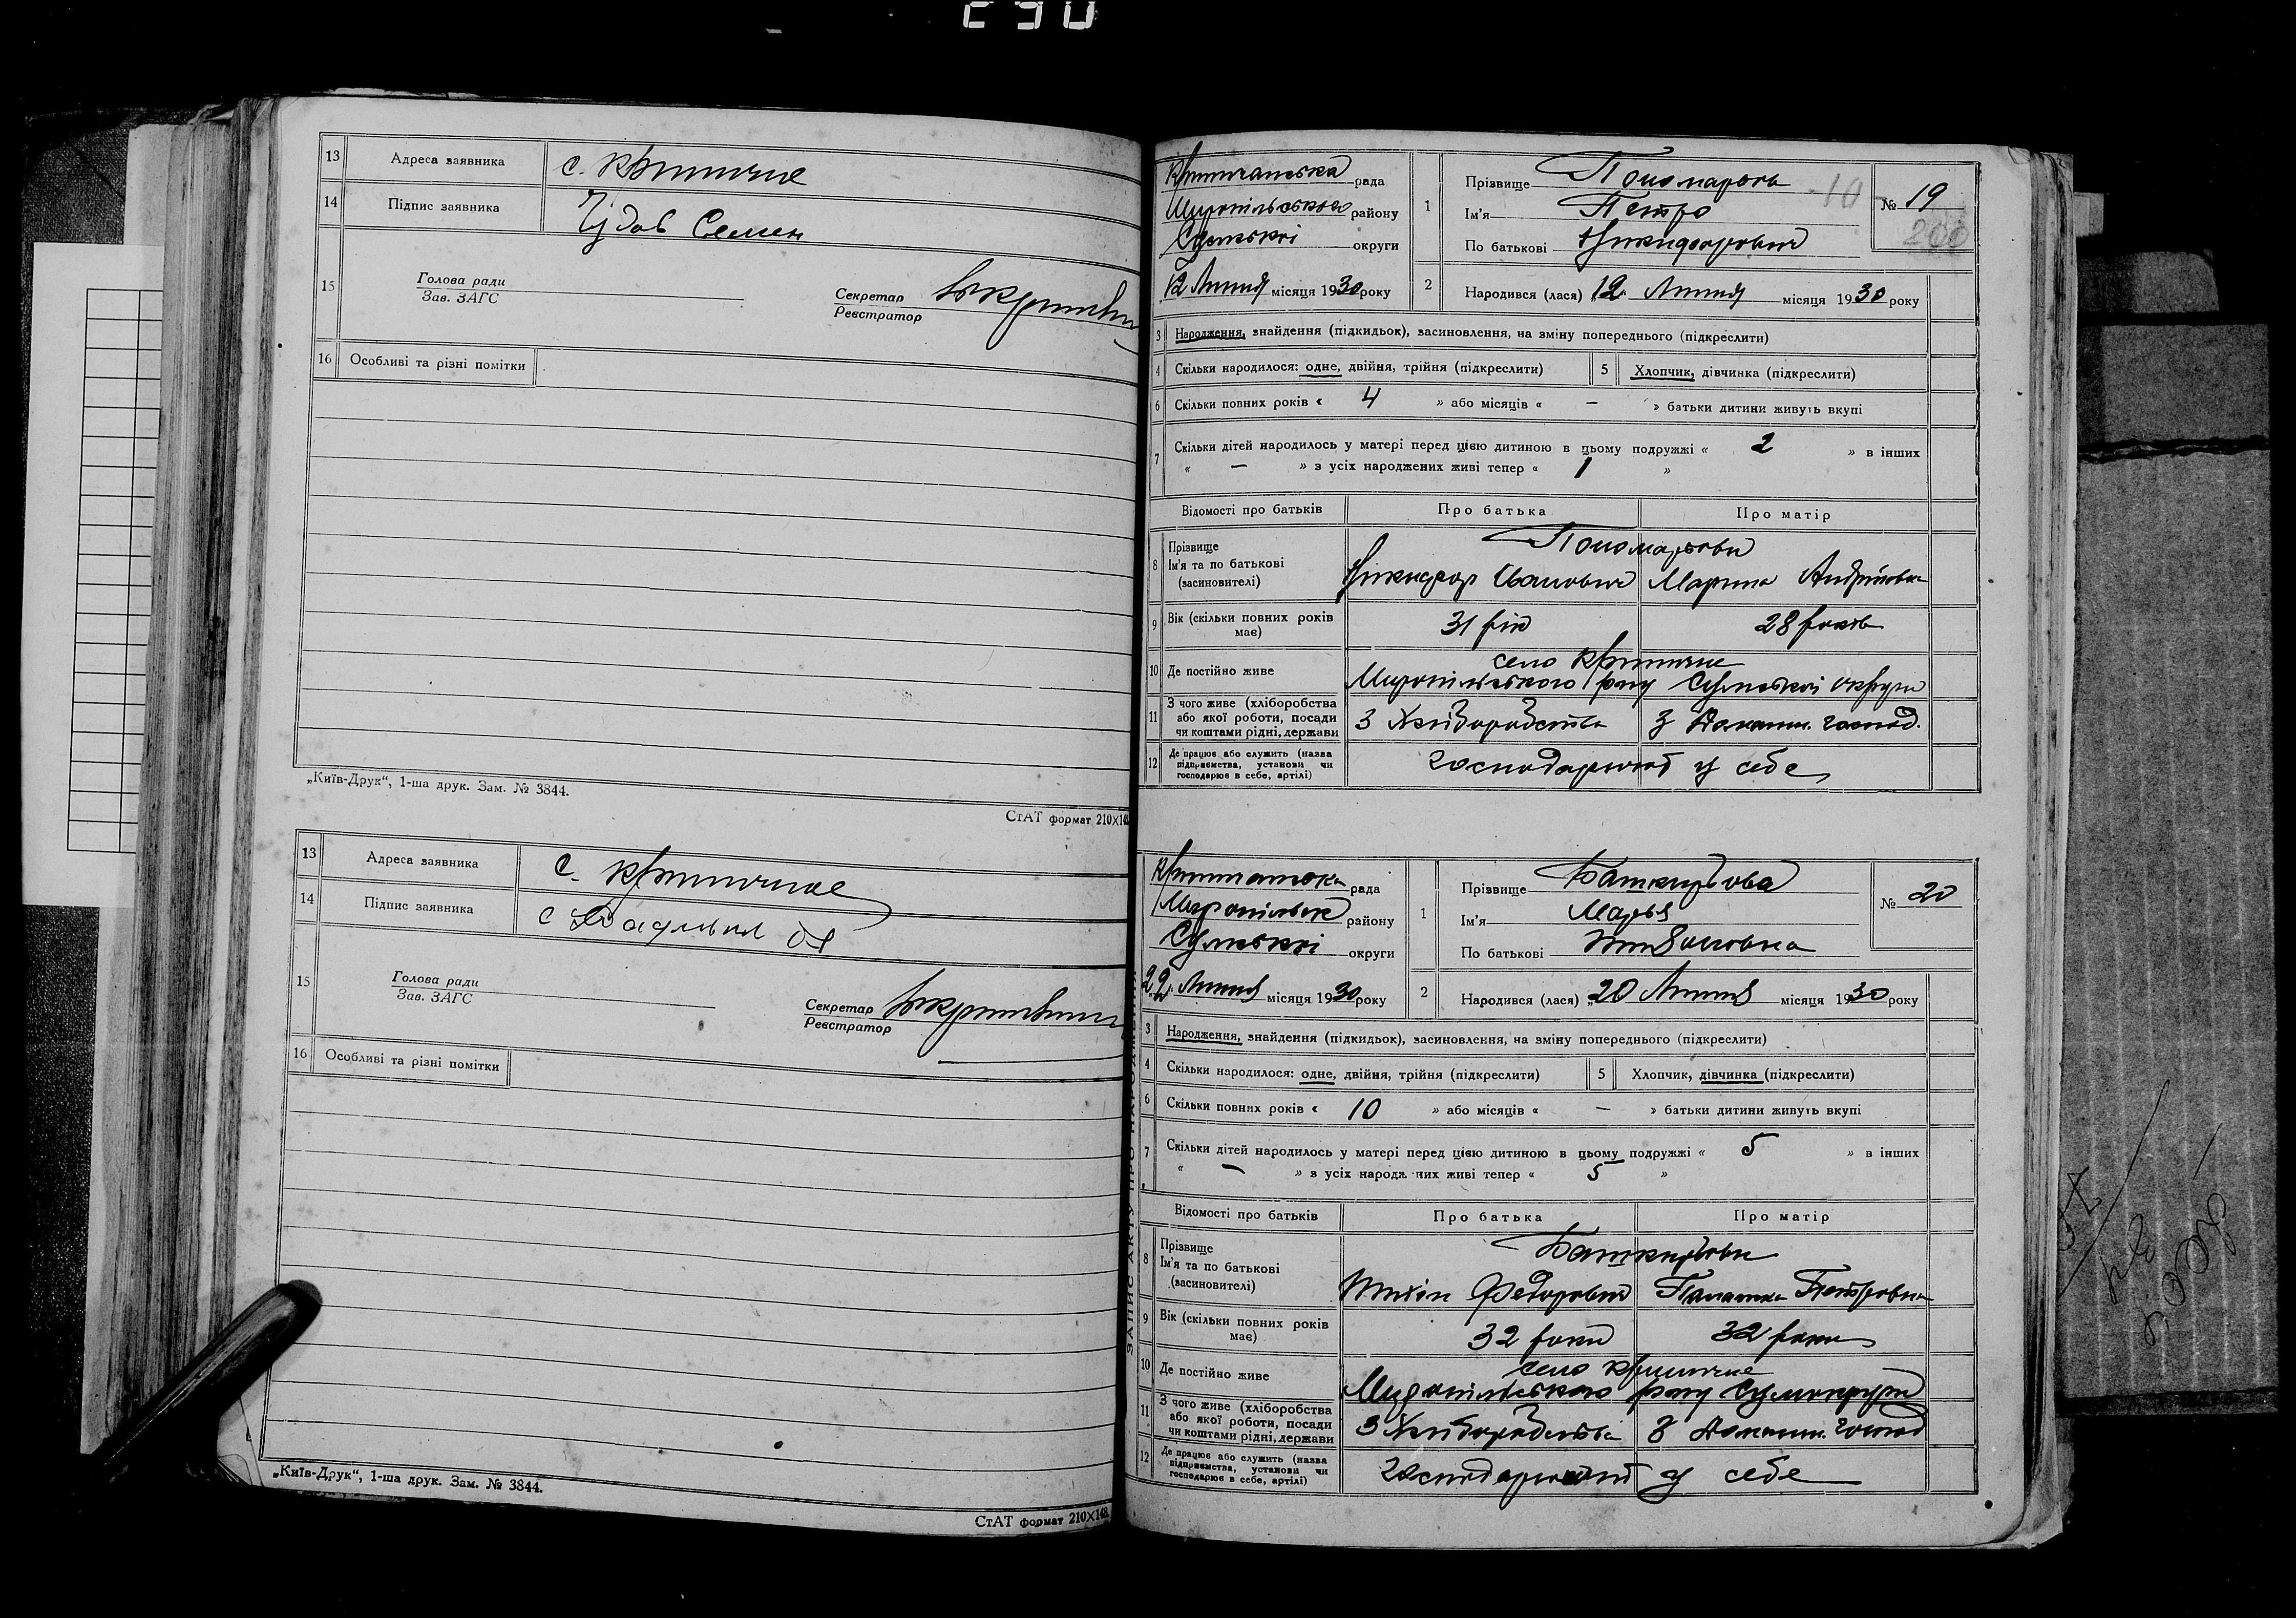 290
13 Адреса заявника с. Криничне
14 Підпис заявника Чудов Семен
15 Голова ради
Зав. ЗАГС
Секретар
Реєстратор
16 Особливі та різні помітки
„Київ-Друк“, 1-ша друк. Зам. № 3844.
СтАТ формат 210×148
13 Адреса заявника с. Криничне
14 Підпис заявника
15 Голова ради
Зав. ЗАГС
Секретар
Реєстратор
16 Особливі та різні помітки
„Київ-Друк“, 1-ша друк. Зам. № 3844.
СтАТ формат 210×148
Криничанська рада
Миропільського району
Сумської округи
12 Липня місяця 1930 року
1 Прізвище Пономарьов
Ім'я Петро
По батькові Никифорович
№ 19
200
2 Народився (лася) 12 Липня місяця 1930 року
3 Народження, знайдення (підкидьок), засиновлення, на зміну попереднього (підкреслити)
4 Скільки народилося: одне, двійня, трійня (підкреслити) 5 Хлопчик, дівчинка (підкреслити)
6 Скільки повних років « 4 » або місяців « — » батьки дитини живуть вкупі
7 Скільки дітей народилось у матері перед цією дитиною в цьому подружжі « 2 » в інших
« — » з усіх народжених живі тепер « 1 »
Відомості про батьків Про батька Про матір
8 Прізвище Пономарьови
Ім'я та по батькові Никифор Іванович Марина Андріївна
(засиновителі)
9 Вік (скільки повних років має) 31 рік 28 років
10 Де постійно живе село Криничне
Миропільського р-ну Сумської округи
11 З чого живе (хліборобства або якої роботи, посади чи коштами рідні, держави З Хліборобства З Домашн. господ.
12 Де працює або служить (назва підприємства, установи чи господарює в себе, артілі) господарюют у себе
ЗАПИС АКТУ ПРО НАРОДЖЕННЯ
Криничанська рада
Миропільськ району
Сумської округи
22 Липня місяця 1930 року
1 Прізвище Башкирьова
Ім'я Марья
По батькові Тихоновна
№ 20
2 Народився (лася) 20 Липня місяця 1930 року
3 Народження, знайдення (підкидьок), засиновлення, на зміну попереднього (підкреслити)
4 Скільки народилося: одне, двійня, трійня (підкреслити) 5 Хлопчик, дівчинка (підкреслити)
6 Скільки повних років « 10 » або місяців « — » батьки дитини живуть вкупі
7 Скільки дітей народилось у матері перед цією дитиною в цьому подружжі « 5 » в інших
« — » з усіх народжених живі тепер « 5 »
Відомості про батьків Про батька Про матір
8 Прізвище Башкирьови
Ім'я та по батькові Тихон Федорович Петровна
(засиновителі)
9 Вік (скільки повних років має) 32 роки 32 роки
10 Де постійно живе село Криничне
Миропільського р-ну Сумокруги
11 З чого живе (хліборобства або якої роботи, посади чи коштами рідні, держави З Хліборобства З Домашн. господ
12 Де працює або служить (назва підприємства, установи чи господарює в себе, артілі) господарюют у себе